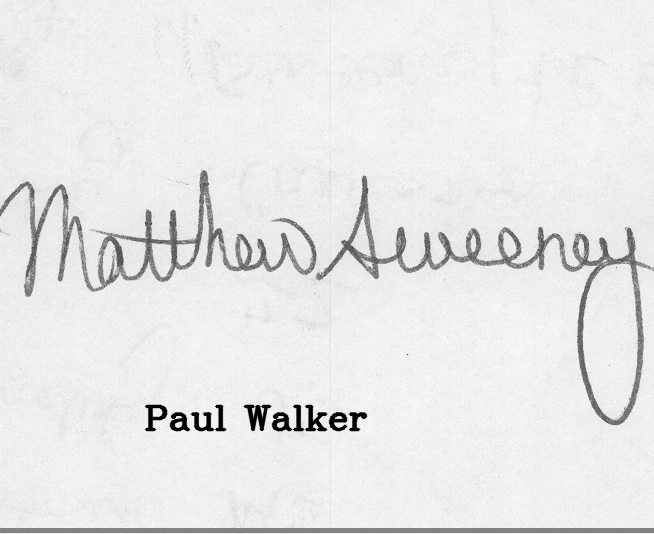 Matthew Sweeney
Paul Walker